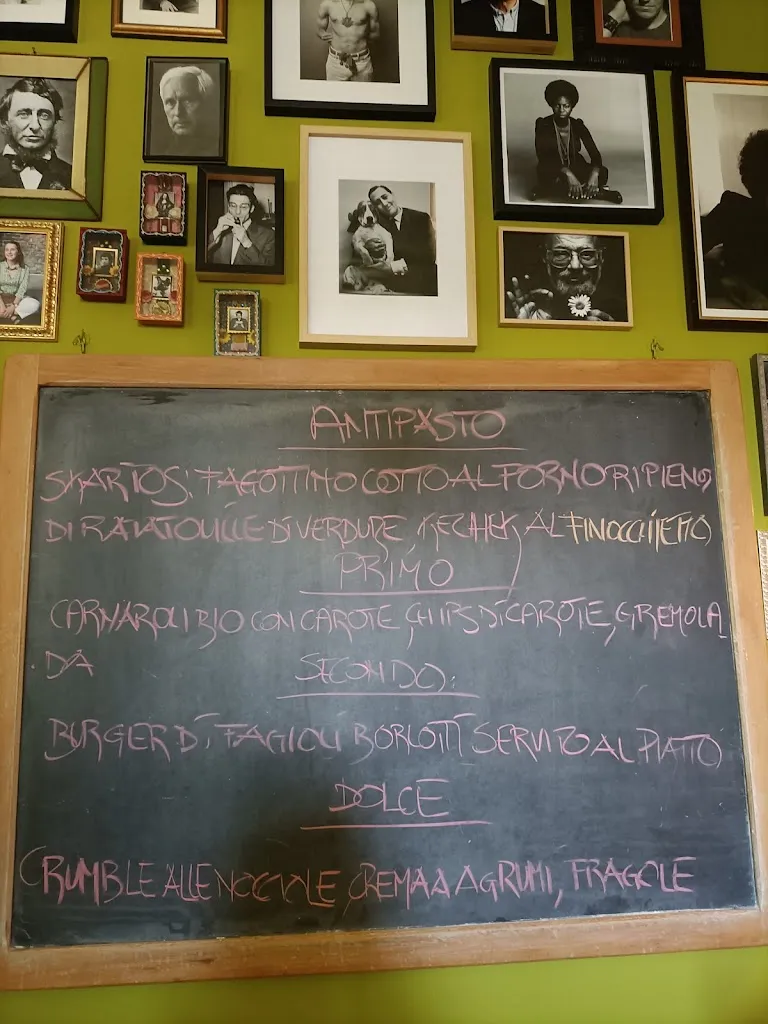 ANTIPASTO
SKARTOS: FAGOTTINO COTTO AL FORNO RIPIENO
DI RATATOUILLE DI VERDURE, KETCHUP AL FINOCCHIETTO
PRIMO
CARNAROLI BIO CON CAROTE, CHIPS DI CAROTE, GREMOLA
DA
SECONDO:
BURGER DI FAGIOLI BORLOTTI SERVITO AL PIATTO
DOLCE
CRUMBLE ALLE NOCCIOLE, CREMA A AGRUMI, FRAGOLE